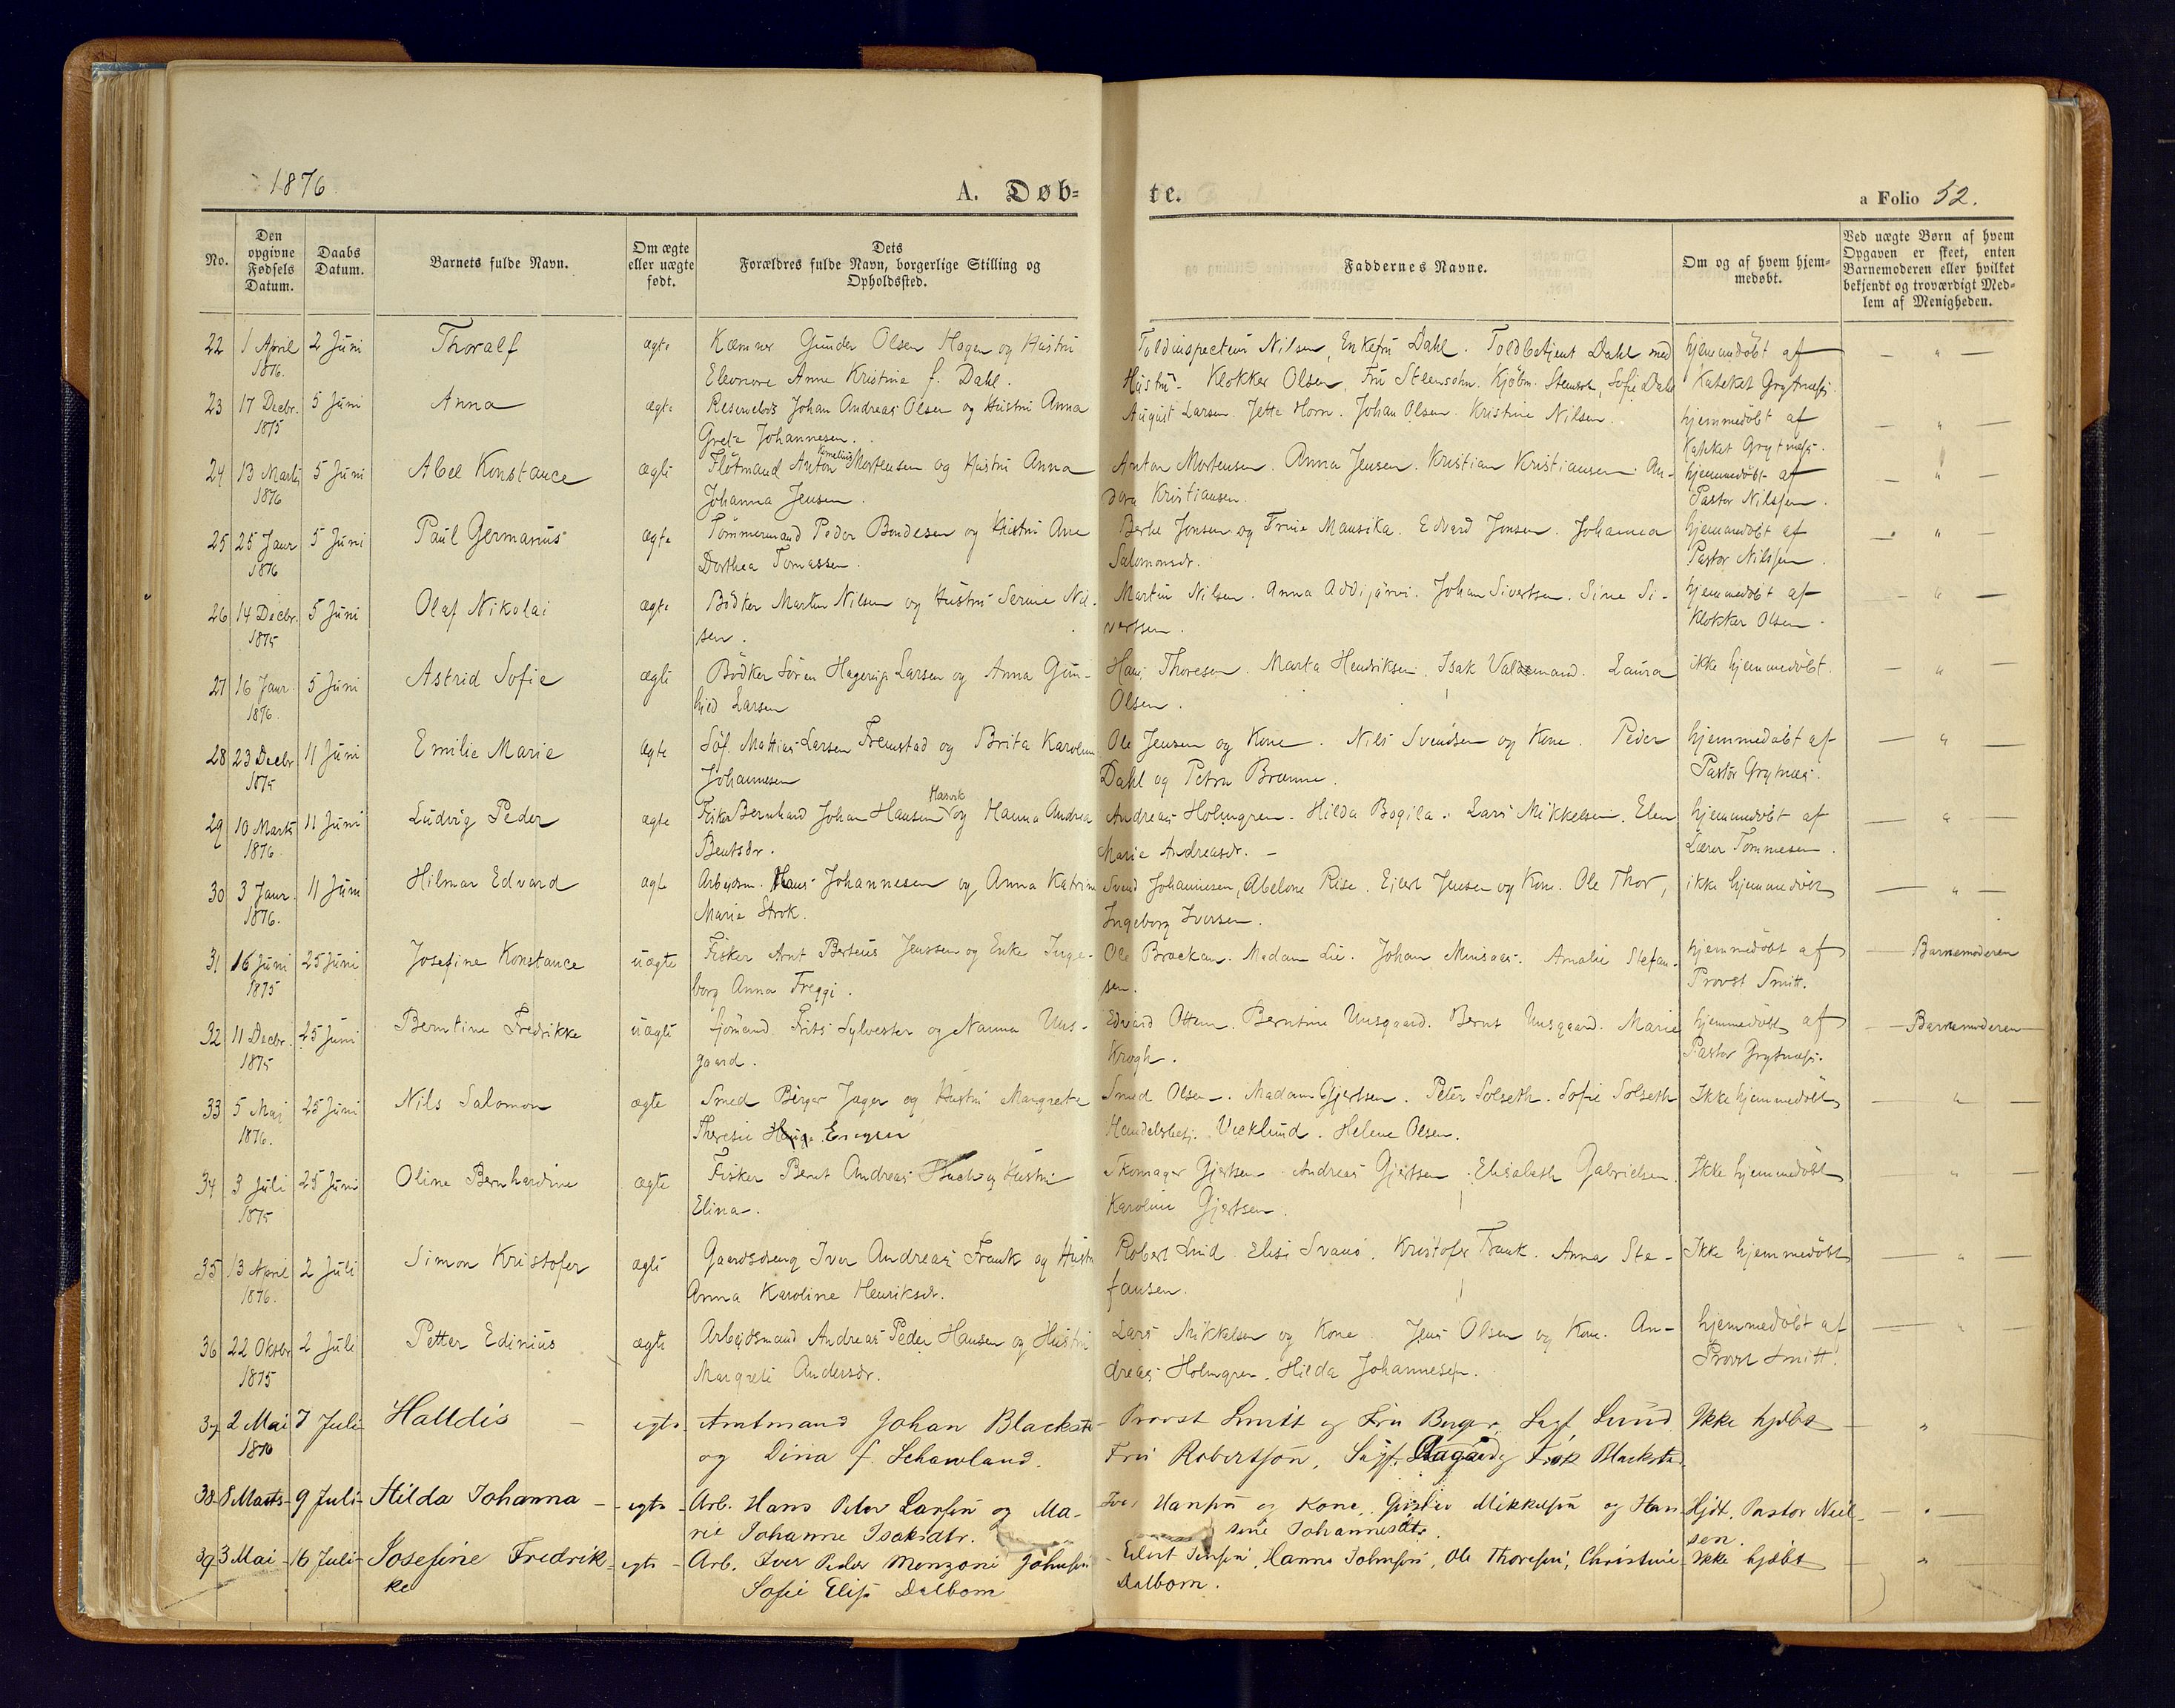 1876
A. Døb-
te.
a Folio 52.
No.
Den opgivne Fødsels Datum.
Daabs Datum.
Barnets fulde Navn.
Om ægte eller uægte født.
Dets Forældres fulde Navn, borgerlige Stilling og Opholdssted.
Faddernes Navne.
Om og af hvem hjem-medøbt.
Ved uægte Børn af hvem Opgaven er skeet, enten Barnemoderen eller hvilket bekjendt og troværdigt Med-lem af Menigheden.
22 1 April 2 Juni Thoralf ægte Kæmner Gunder Olsen Hagen og Hustru Toldinspecteur Nilsen, Enkefru Dahl. Toldbetjent Dahl med hjemmedöbt af — " —
1876. Eleonore Anne Kristine f. Dahl. Hustru. Klokker Olsen, Fru Steensohn. Kjöbm. Steensoh, Sofie Dahl Kateket Grytnæss.
23 17 Decbr. 5 Juni Anna ægte Johan Andreas Olsen og Hustru Anna August Larsen. Jette Horn. Johan Olsen. Kristine Nilsen. hjemmedöbt af — " —
1875 Grete Johannesen. Kateket Grytnæss.
24 13 Marts 5 Juni Abel Konstance ægte Flötmand Anton Kornelius Mortensen og Hustru Anna Anton Mortensen. Anna Jensen. Kristian Kristiansen. An- hjemmedöbt af — " —
1876 Johanna Jensen. dora Kristiansen. Pastor Nilssen.
25 25 Janr 5 Juni Paul Germanus ægte Tömmermand Peder Bendesen og Hustru Ane Jonsen og Mausika. Edvard Jonsen. Johanna hjemmedöbt af — " —
1876 Dorthea Tomassen. Salomonsdr. Pastor Nilssen.
26 14 Decbr. 5 Juni Olaf Nikolai ægte Bödker Martin Nilsen og Hustru Serine Nil- Martin Nilsen. Anna Addijärvi. Johan Sivertsen. Sine Si- hjemmedöbt af — " —
1875 sen. vertsen. Klokker Olsen.
27 16 Janr. 5 Juni Astrid Sofie ægte Bödker Sören Hagerup Larsen og Anna Gun- Hans Thoresen. Marta Hendriksen. Isak Valdemand. Laura ikke hjemmedöbt. — "
1876. hild Larsen Olsen.
28 23 Decbr 11 Juni Emilie Marie ægte Söf. Mathias Larsen Fremstad og Brita Karoline Ole Jensen og Kone. Nils Svendsen og Kone. Peder hjemmedöbt af — " —
1875 Johannesen Dahl og Petra Brænne. Pastor Grytnæs.
29 10 Marts 11 Juni Ludvig Peder ægte Fisker Bernhard Johan Hansen Hasvik og Hanna Andrea Andreas Holmgren. Hilda Bogila. Lars Mikkelsen. Elen hjemmedöbt af — " —
1876. Bentsdr. Marie Andreasdr. — Lærer Tommesen.
30 3 Janr. 11 Juni Hilmar Edvard ægte Arbejdsm. Hans Johannesen og Anna Katrine Svend Johannesen, Abelone Rise. Ejlert Jensen og Kone. Ole Thor, ikke hjemmedöbt — " —
1876. Marie Strok. Ingeborg Iversen.
31 16 Juni 25 Juni Josefine Konstance uægte Fisker Arnt Berteus Jenssen og Enke Inge- Ole Brackan. Madam Lie. Johan Minsaas. Amalie Stefan- hjemmedöbt af — Barnemoderen
1875 borg Anna Freggi. sen. Provst Smitt.
32 11 Decbr. 25 Juni Berntine Fredrikke uægte Sjömand Frits Sylvester og Nanna Uns- Edvard Ottem. Berntine Unsgaard. Bernt Unsgaard. Marie hjemmedöbt af — Barnemoderen —
1875 gaard. Krogh. Pastor Grytnæss.
33 5 Maj 25 Juni Nils Salomon ægte Smed Birger Jager og Hustru Margrete Smed Olsen. Madam Gjertsen. Peter Solseth. Sofie Solseth Ikke hjemmedöbt — " —
1876. Theresie Handelsbetj. Vicklund. Helene Olsen.
34 3 Juli 25 Juni Oline Bernhardine ægte Fisker Bernt Andreas Buch og Hustru Skomager Gjertsen. Andreas Gjertsen. Elisabeth Gabrielsen. Ikke hjemmedöbt — " —
1875 Elina. Karoline Gjertsen.
35 13 April 2 Juli Simon Kristofer ægte Gaardsdreng Iver Andreas Frank og Hustru Robert Lind. Elisi Svanö. Kristofer Frank. Anna Ste- Ikke hjemmedöbt — " —
1876. Anna Karoline Henriksdr. fansen.
36 22 Oktbr 2 Juli Petter Edinius ægte Arbejdsmand Andreas Peder Hansen og Hustru Lars Mikkelsen og Kone. Jens Olsen og Kone. An- hjemmedöbt af — " —
1875 Margrete Andersdr. dreas Holmgren. Hilda Johannesen. Provst Smitt.
37 2 Mai 7 Juli Halldis — egte Amtmand Johan Blackstad Provst Smitt og Fru Berger, Sagf. Lund Ikke hjdbt — "
1876 og Dina f. Schawland. Fru Robertson, Sagf. Aagaard, Frök Blackstad.
38 8 Marts 9 Juli Hilda Johanna — egte Arb. Hans Peter Larsen og Ma- Iver Hansen og Kone, Gustav Mikkelsen og Han- Hjdt. Pastor Neil- — " —
rie Johanne Isaksdtr. sine Johannesdtr. sen.
39 3 Mai 16 Juli Josefine Fredrik- egte Arb. Iver Peder Monzoni Johnsen Eilert Jensen, Hanna Johnsen, Ole Thoresen, Christine Ikke hjdbt — "
ke Sofie Elise Dalbom Dalbom.